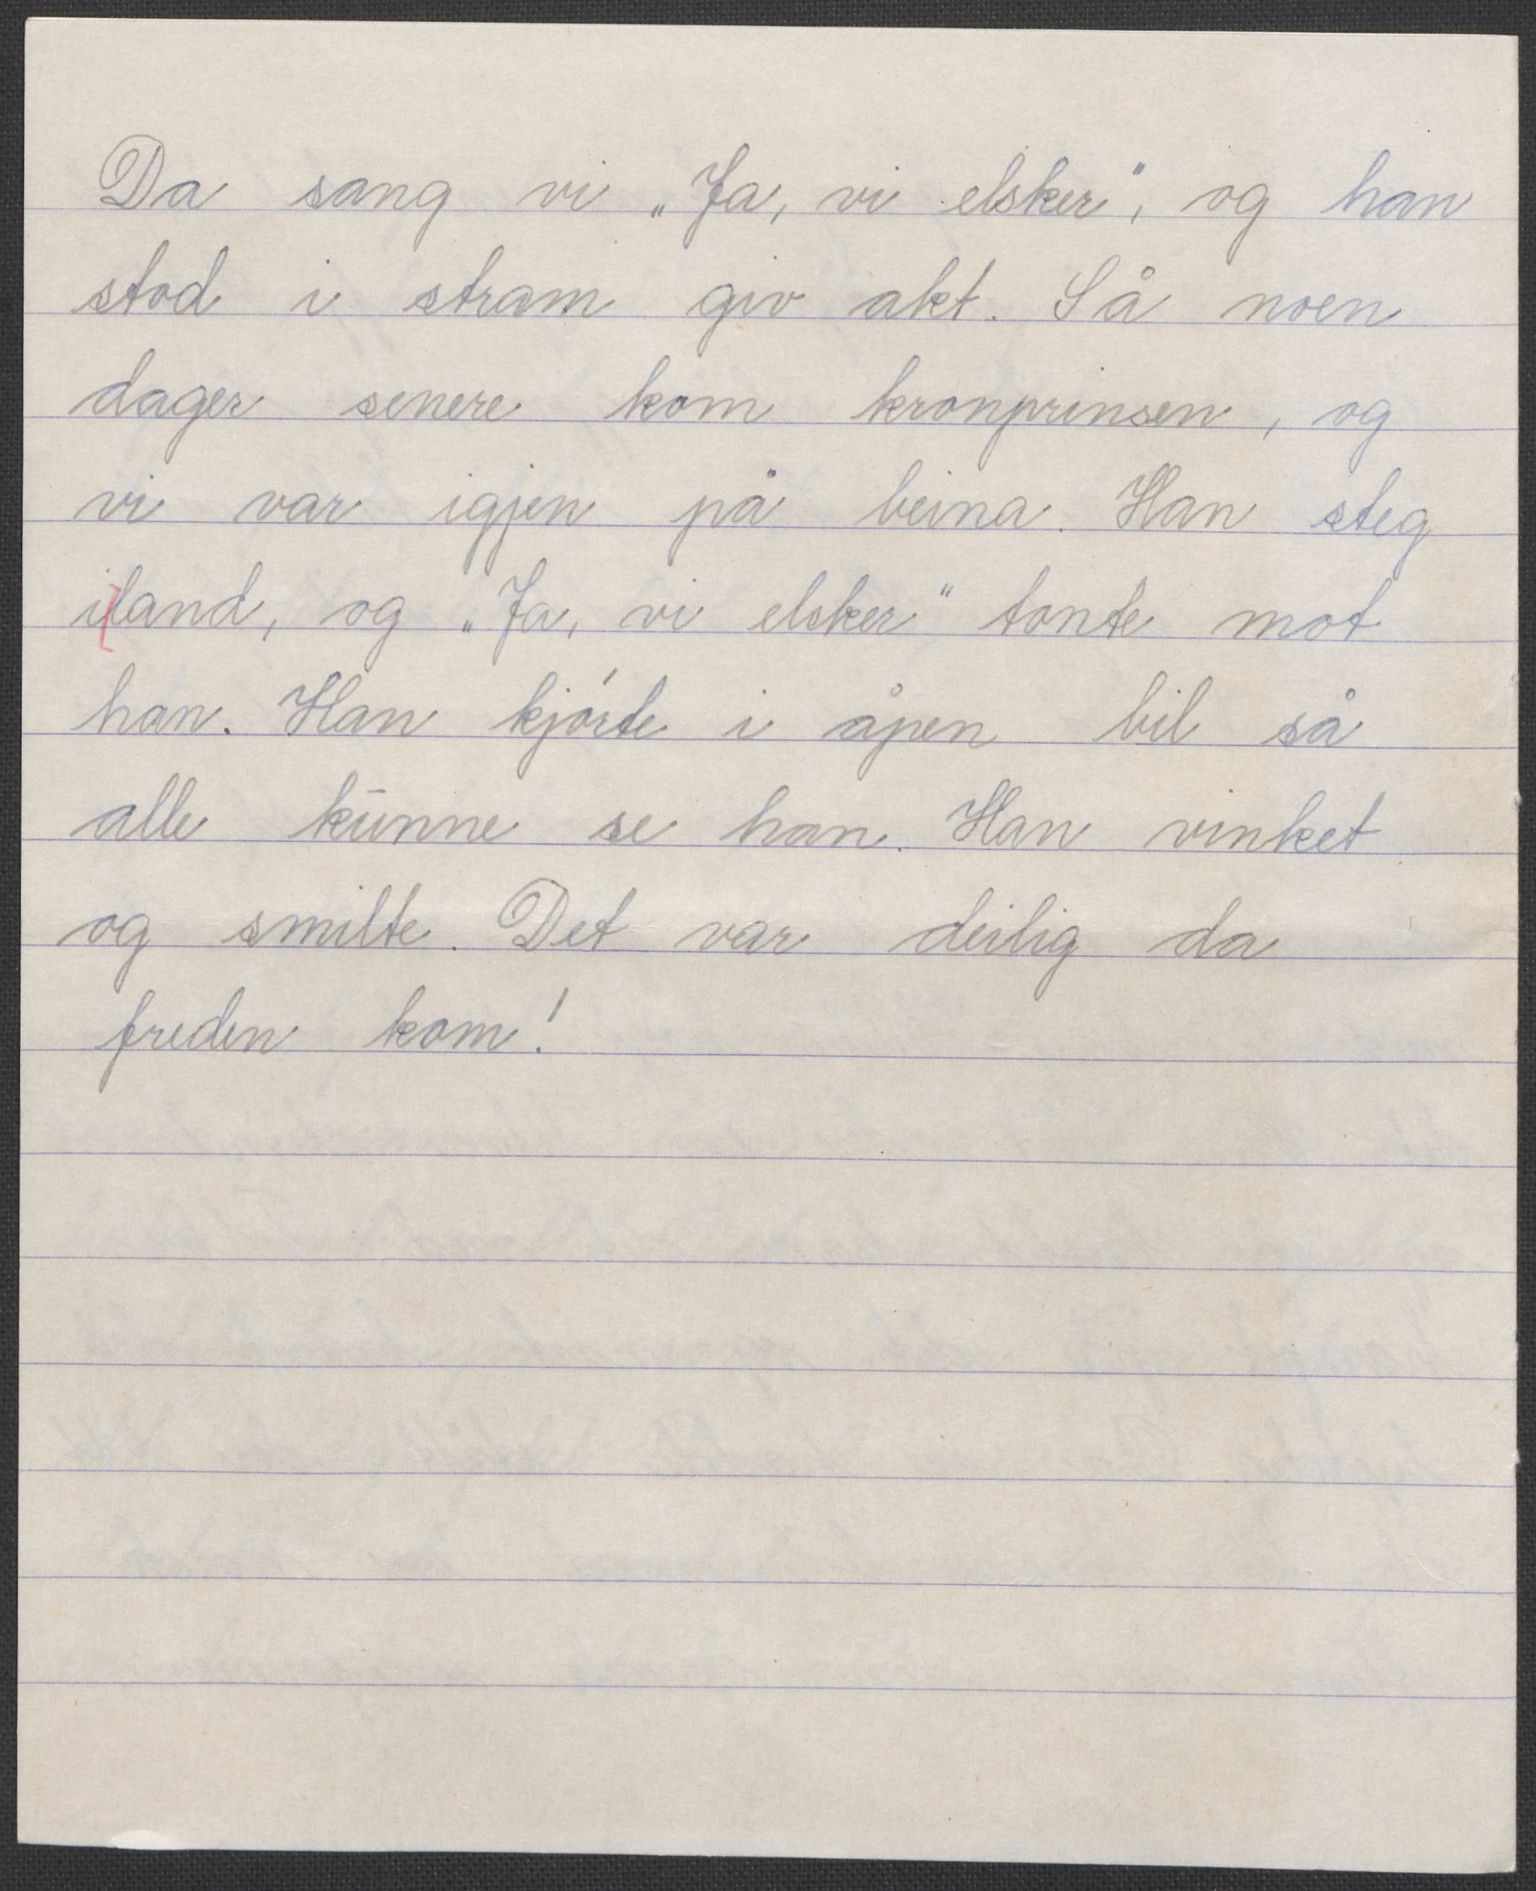 Da sang vi „Ja, vi elsker“, og han
stod i stram giv akt. Så noen
dager senere kom kronprinsen, og
vi var igjen på beina. Han steg
iland, og „Ja, vi elsker“ tonte mot
han. Han kjórte i åpen bil så
alle kunne se han. Han vinket
og smilte. Det var deilig da
freden kom!